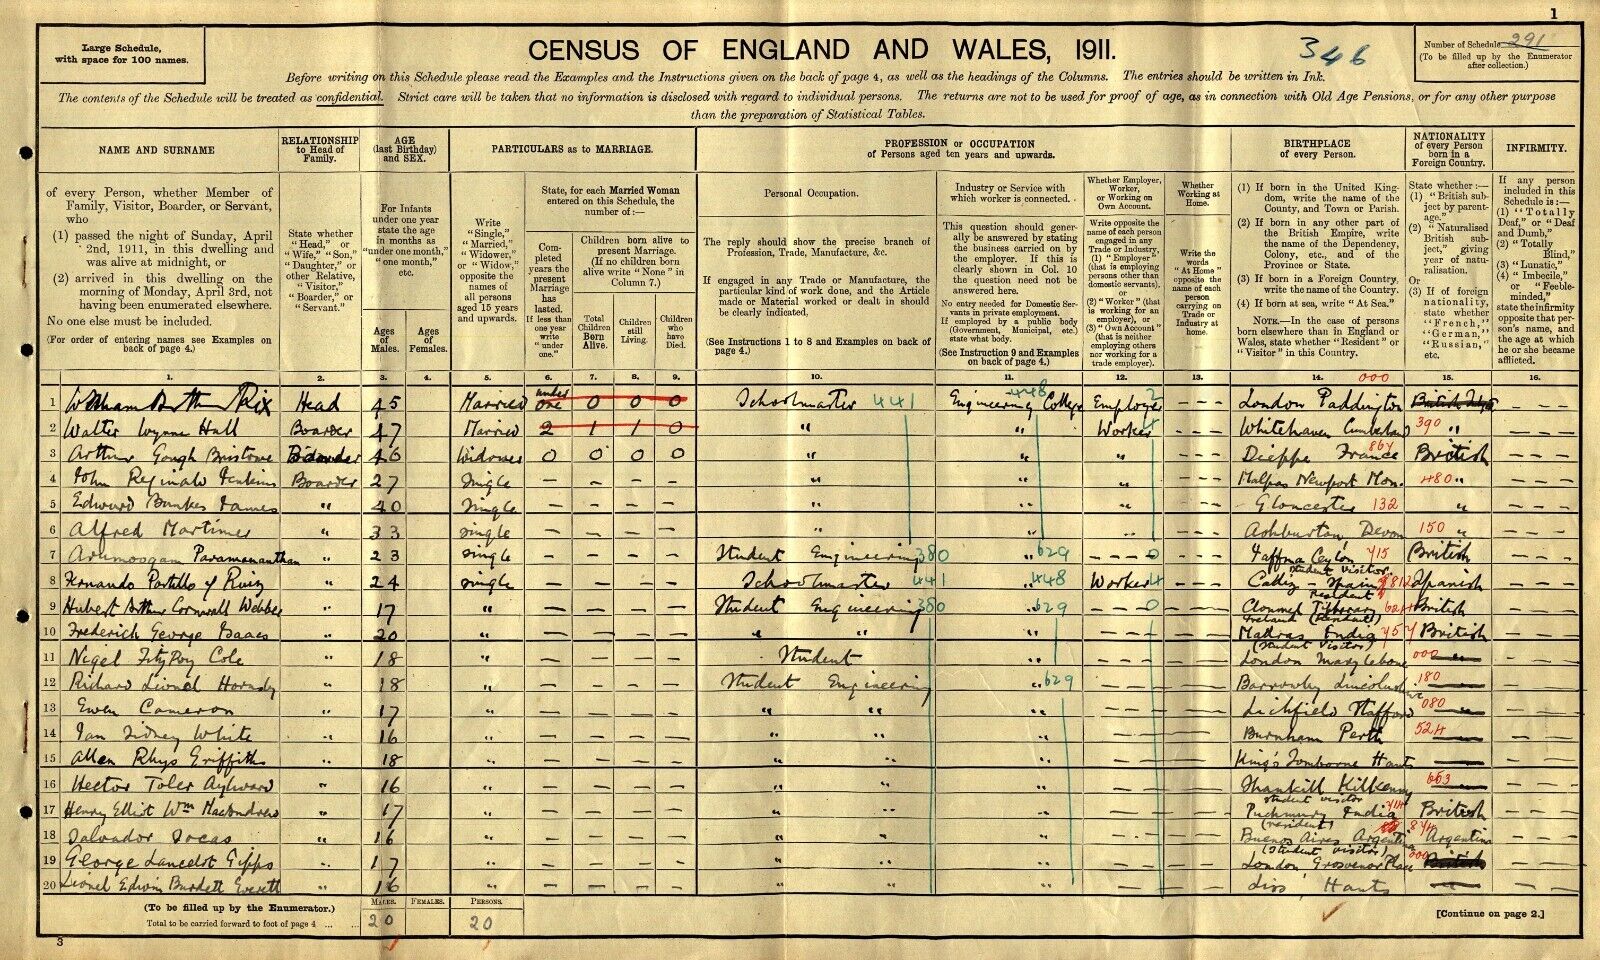 1
Large Schedule,
with space for 100 names.
CENSUS OF ENGLAND AND WALES, 1911.
346
Number of Schedule 291
(To be filled up by the Enumerator
after collection.)
Before writing on this Schedule please read the Examples and the Instructions given on the back of page 4, as well as the headings of the Columns. The entries should be written in Ink.
The contents of the Schedule will be treated as confidential. Strict care will be taken that no information is disclosed with regard to individual persons. The returns are not to be used for proof of age, as in connection with Old Age Pensions, or for any other purpose
than the preparation of Statistical Tables.
NAME AND SURNAME
of every Person, whether Member of
Family, Visitor, Boarder, or Servant,
who
(1) passed the night of Sunday, April
2nd, 1911, in this dwelling and
was alive at midnight, or
(2) arrived in this dwelling on the
morning of Monday, April 3rd, not
having been enumerated elsewhere.
No one else must be included.
(For order of entering names see Examples on
back of page 4.)
RELATIONSHIP
to Head of
Family.
State whether
"Head," or
"Wife," "Son,"
"Daughter," or
other Relative,
"Visitor,"
"Boarder," or
"Servant."
AGE
(last Birthday)
and SEX.
For Infants
under one year
state the age
in months as
"under one month,"
"one month,"
etc.
Ages
of
Males.
Ages
of
Females.
PARTICULARS as to MARRIAGE.
Write
"Single,"
"Married,"
"Widower,"
or "Widow,"
opposite the
names of
all persons
aged 15 years
and upwards.
State, for each Married Woman
entered on this Schedule, the
number of:—
Completed
years the
present
Marriage
has
lasted.
If less than
one year
write
"under
one."
Children born alive to
present Marriage.
(If no children born
alive write "None" in
Column 7.)
Total
Children
Born
Alive.
Children
still
Living.
Children
who
have
Died.
PROFESSION or OCCUPATION
of Persons aged ten years and upwards.
Personal Occupation.
The reply should show the precise branch of
Profession, Trade, Manufacture, &c.
If engaged in any Trade or Manufacture, the
particular kind of work done, and the Article
made or Material worked or dealt in should
be clearly indicated.
(See Instructions 1 to 8 and Examples on back of
page 4.)
Industry or Service with
which worker is connected.
This question should generally
be answered by stating
the business carried on by
the employer. If this is
clearly shown in Col. 10
the question need not be
answered here.
No entry needed for Domestic Servants
in private employment.
If employed by a public body
(Government, Municipal, etc.)
state what body.
(See Instruction 9 and Examples
on back of page 4.)
Whether Employer,
Worker,
or Working on
Own Account.
Write opposite the
name of each person
engaged in any
Trade or Industry,
(1) "Employer"
(that is employing
persons other than
domestic servants),
or
(2) "Worker" (that
is working for an
employer), or
(3) "Own Account"
(that is neither
employing others
nor working for a
trade employer).
Whether
Working at
Home.
Write the
words
"At Home"
opposite the
name of each
person
carrying on
Trade or
Industry at
home.
BIRTHPLACE
of every Person.
(1) If born in the United Kingdom,
write the name of the
County, and Town or Parish.
(2) If born in any other part of
the British Empire, write
the name of the Dependency,
Colony, etc., and of the
Province or State.
(3) If born in a Foreign Country,
write the name of the Country.
(4) If born at sea, write "At Sea."
NOTE.—In the case of persons
born elsewhere than in England or
Wales, state whether "Resident" or
"Visitor" in this Country.
NATIONALITY
of every Person
born in a
Foreign Country.
State whether:—
(1) "British subject
by parentage."
(2) "Naturalised
British
subject,"
giving
year of naturalisation.
Or
(3) If of foreign
nationality,
state whether
"French,"
"German,"
"Russian,"
etc.
INFIRMITY.
If any person
included in this
Schedule is:—
(1) "Totally
Deaf," or "Deaf
and Dumb,"
(2) "Totally
Blind,"
(3) "Lunatic,"
(4) "Imbecile,"
or "Feeble-minded,"
state the infirmity
opposite that person's
name, and
the age at which
he or she became
afflicted.
1. 2. 3. 4. 5. 6. 7. 8. 9. 10. 11. 12. 13. 14. 000 15. 16.
1 William Arthur Rix Head 45 Married under one 0 0 0 Schoolmaster 441 Engineering College 448 Employer 2 London Paddington
2 Walter Wynne Hall Boarder 47 Married 2 1 1 0 " " Worker 4 Whitehaven Cumberland 390 "
3 Arthur Gough Bristowe Boarder 46 Widower 0 0 0 0 " " " Dieppe France 864 British
4 John Reginald Jenkins Boarder 27 Single — — — — " " " Malpas Newport Mon. 480 "
5 Edward Bankes James " 40 Single — — — — " " " Gloucester 132 "
6 Alfred Mortimer " 33 Single — — — — " " Ashburton Devon 150 "
7 Arumoogam Paramananthan " 23 Single — — — — Student Engineering 380 " 629 — — 0 Jaffna Ceylon 715 British
Student Visitor
8 Fernando Portillo y Ruiz " 24 Single — — — — Schoolmaster 441 " 448 Worker 4 Cadiz - Spain 812 Spanish
Resident
9 Hubert Arthur Cornwall Webber " 17 " — — — — Student Engineering 380 " 629 — 0 Clonmel Tipperary 624 British
Ireland (Resident)
10 Frederick George Isaacs " 20 " — — — — " " " Madras India 757 British
(Student Visitor)
11 Nigel FitzRoy Cole " 18 " — — — — Student " London Marylebone 000
12 Richard Lionel Hornsby " 18 " — — — — Student Engineering " 629 Barrowby Lincolnshire 180
13 Ewen Cameron " 17 " — — — — " " " Lichfield Stafford 080
14 Ian Sidney White " 16 " — — — — " " Burnham Perth 524
15 Allen Rhys Griffiths " 18 " — — — — " " King's Somborne Hants
16 Hector Toler Aylward " 16 " — — — — " " Shankill Kilkenny 663
Student Visitor
17 Henry Elliot Wm Macandrew " 17 " — — — — " " Puchmury India 714 British
(resident)
18 Salvador Orcas " 16 " — — — — " " Buenos Aires Argentina 844 Argentina
(Student Visitor)
19 George Lancelot Gipps " 17 " — — — — " " London Grosvenor Place 000
20 Lionel Edwin Burdett Everett " 16 " — — — — " " Liss Hants
(To be filled up by the Enumerator.)
Total to be carried forward to foot of page 4 ... ...
MALES. 20
FEMALES.
PERSONS. 20
[Continue on page 2.]
3